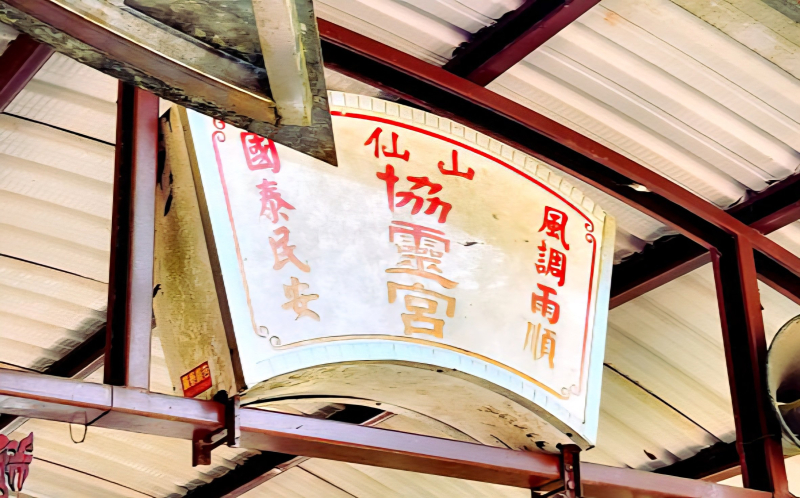 仙山
協靈宮
風調雨順
國泰民安